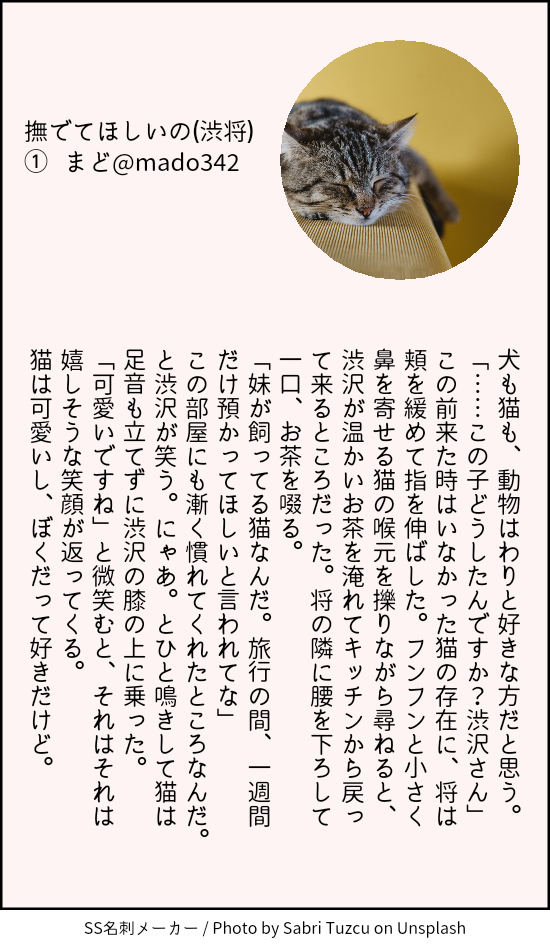 撫でてほしいの(渋将)
① まど@mado342
犬も猫も、動物はわりと好きな方だと思う。
「……この子どうしたんですか？渋沢さん」
この前来た時はいなかった猫の存在に、将は
頬を緩めて指を伸ばした。フンフンと小さく
鼻を寄せる猫の喉元を擽りながら尋ねると、
渋沢が温かいお茶を淹れてキッチンから戻っ
て来るところだった。将の隣に腰を下ろして
一口、お茶を啜る。
「妹が飼ってる猫なんだ。旅行の間、一週間
だけ預かってほしいと言われてな」
この部屋にも漸く慣れてくれたところなんだ。
と渋沢が笑う。にゃあ。とひと鳴きして猫は
足音も立てずに渋沢の膝の上に乗った。
「可愛いですね」と微笑むと、それはそれは
嬉しそうな笑顔が返ってくる。
猫は可愛いし、ぼくだって好きだけど。
SS名刺メーカー / Photo by Sabri Tuzcu on Unsplash